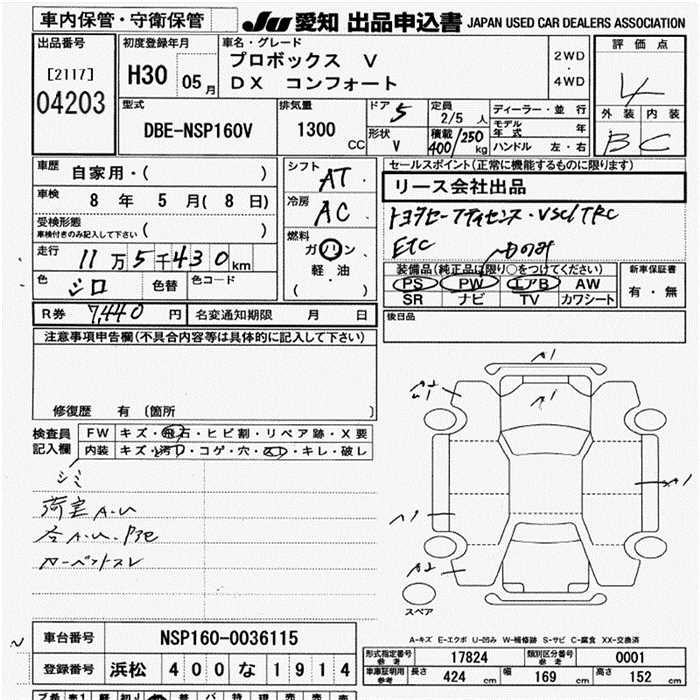 車内保管・守衛保管
JU 愛知 出品申込書 JAPAN USED CAR DEALERS ASSOCIATION
出品番号
[2117]
04203
初度登録年月
H30 05月
車名・グレード
プロボックス V
DX コンフォート
2WD
・
4WD
評価点
4
外装 内装
B C
型式
DBE-NSP160V
排気量
1300 CC
ドア 5
形状 V
定員
2/5 人
積載
400/250 kg
ディーラー・並行
モデル年式 年
ハンドル 左・右
車歴 自家用・( )
車検 8年 5月(8日)
受検形態
車検付きのみ記入して下さい ( )
走行 11万5千430km
色 シロ 色替 色コード
シフト AT
冷房 AC
燃料
ガソリン
軽油
( )
セールスポイント(正常に機能するものに限ります)
リース会社出品
ETC
装備品(純正品は限り○をつけてください)
PS PW エアB AW
SR ナビ TV カワシート
新車保証書
有・無
R券 7,440円 名変通知期限 月 日
後日品
注意事項申告欄(不具合内容等は具体的に記入して下さい)
修復歴 有 〔箇所 〕
検査員
記入欄
FW キズ・飛石・ヒビ割・リペア跡・X要
内装 キズ・汚レ・コゲ・穴・スレ・キレ・破レ
シミ
荷室A.U
A1
A1
A2
A1
A1
A2
スペア
A-キズ E-エクボ U-凹み W-補修跡 S-サビ C-腐食 XX-交換済
車台番号 NSP160-0036115
登録番号 浜松 400 な 1914
形式指定番号
参考
17824
類別区分番号
参考
0001
車庫証明
参考
長さ 424 cm 幅 169 cm 高さ 152 cm